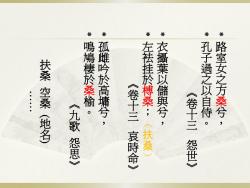 路室女之方桑兮，
孔子過之以自侍。
《卷十三　怨世》
衣攝葉以儲與兮，
左袪挂於榑桑；（扶桑）
《卷十三　哀時命》
孤雌吟於高墉兮，
鳴鳩棲於桑榆。
《九歌　怨思》
扶桑　空桑（地名）
……